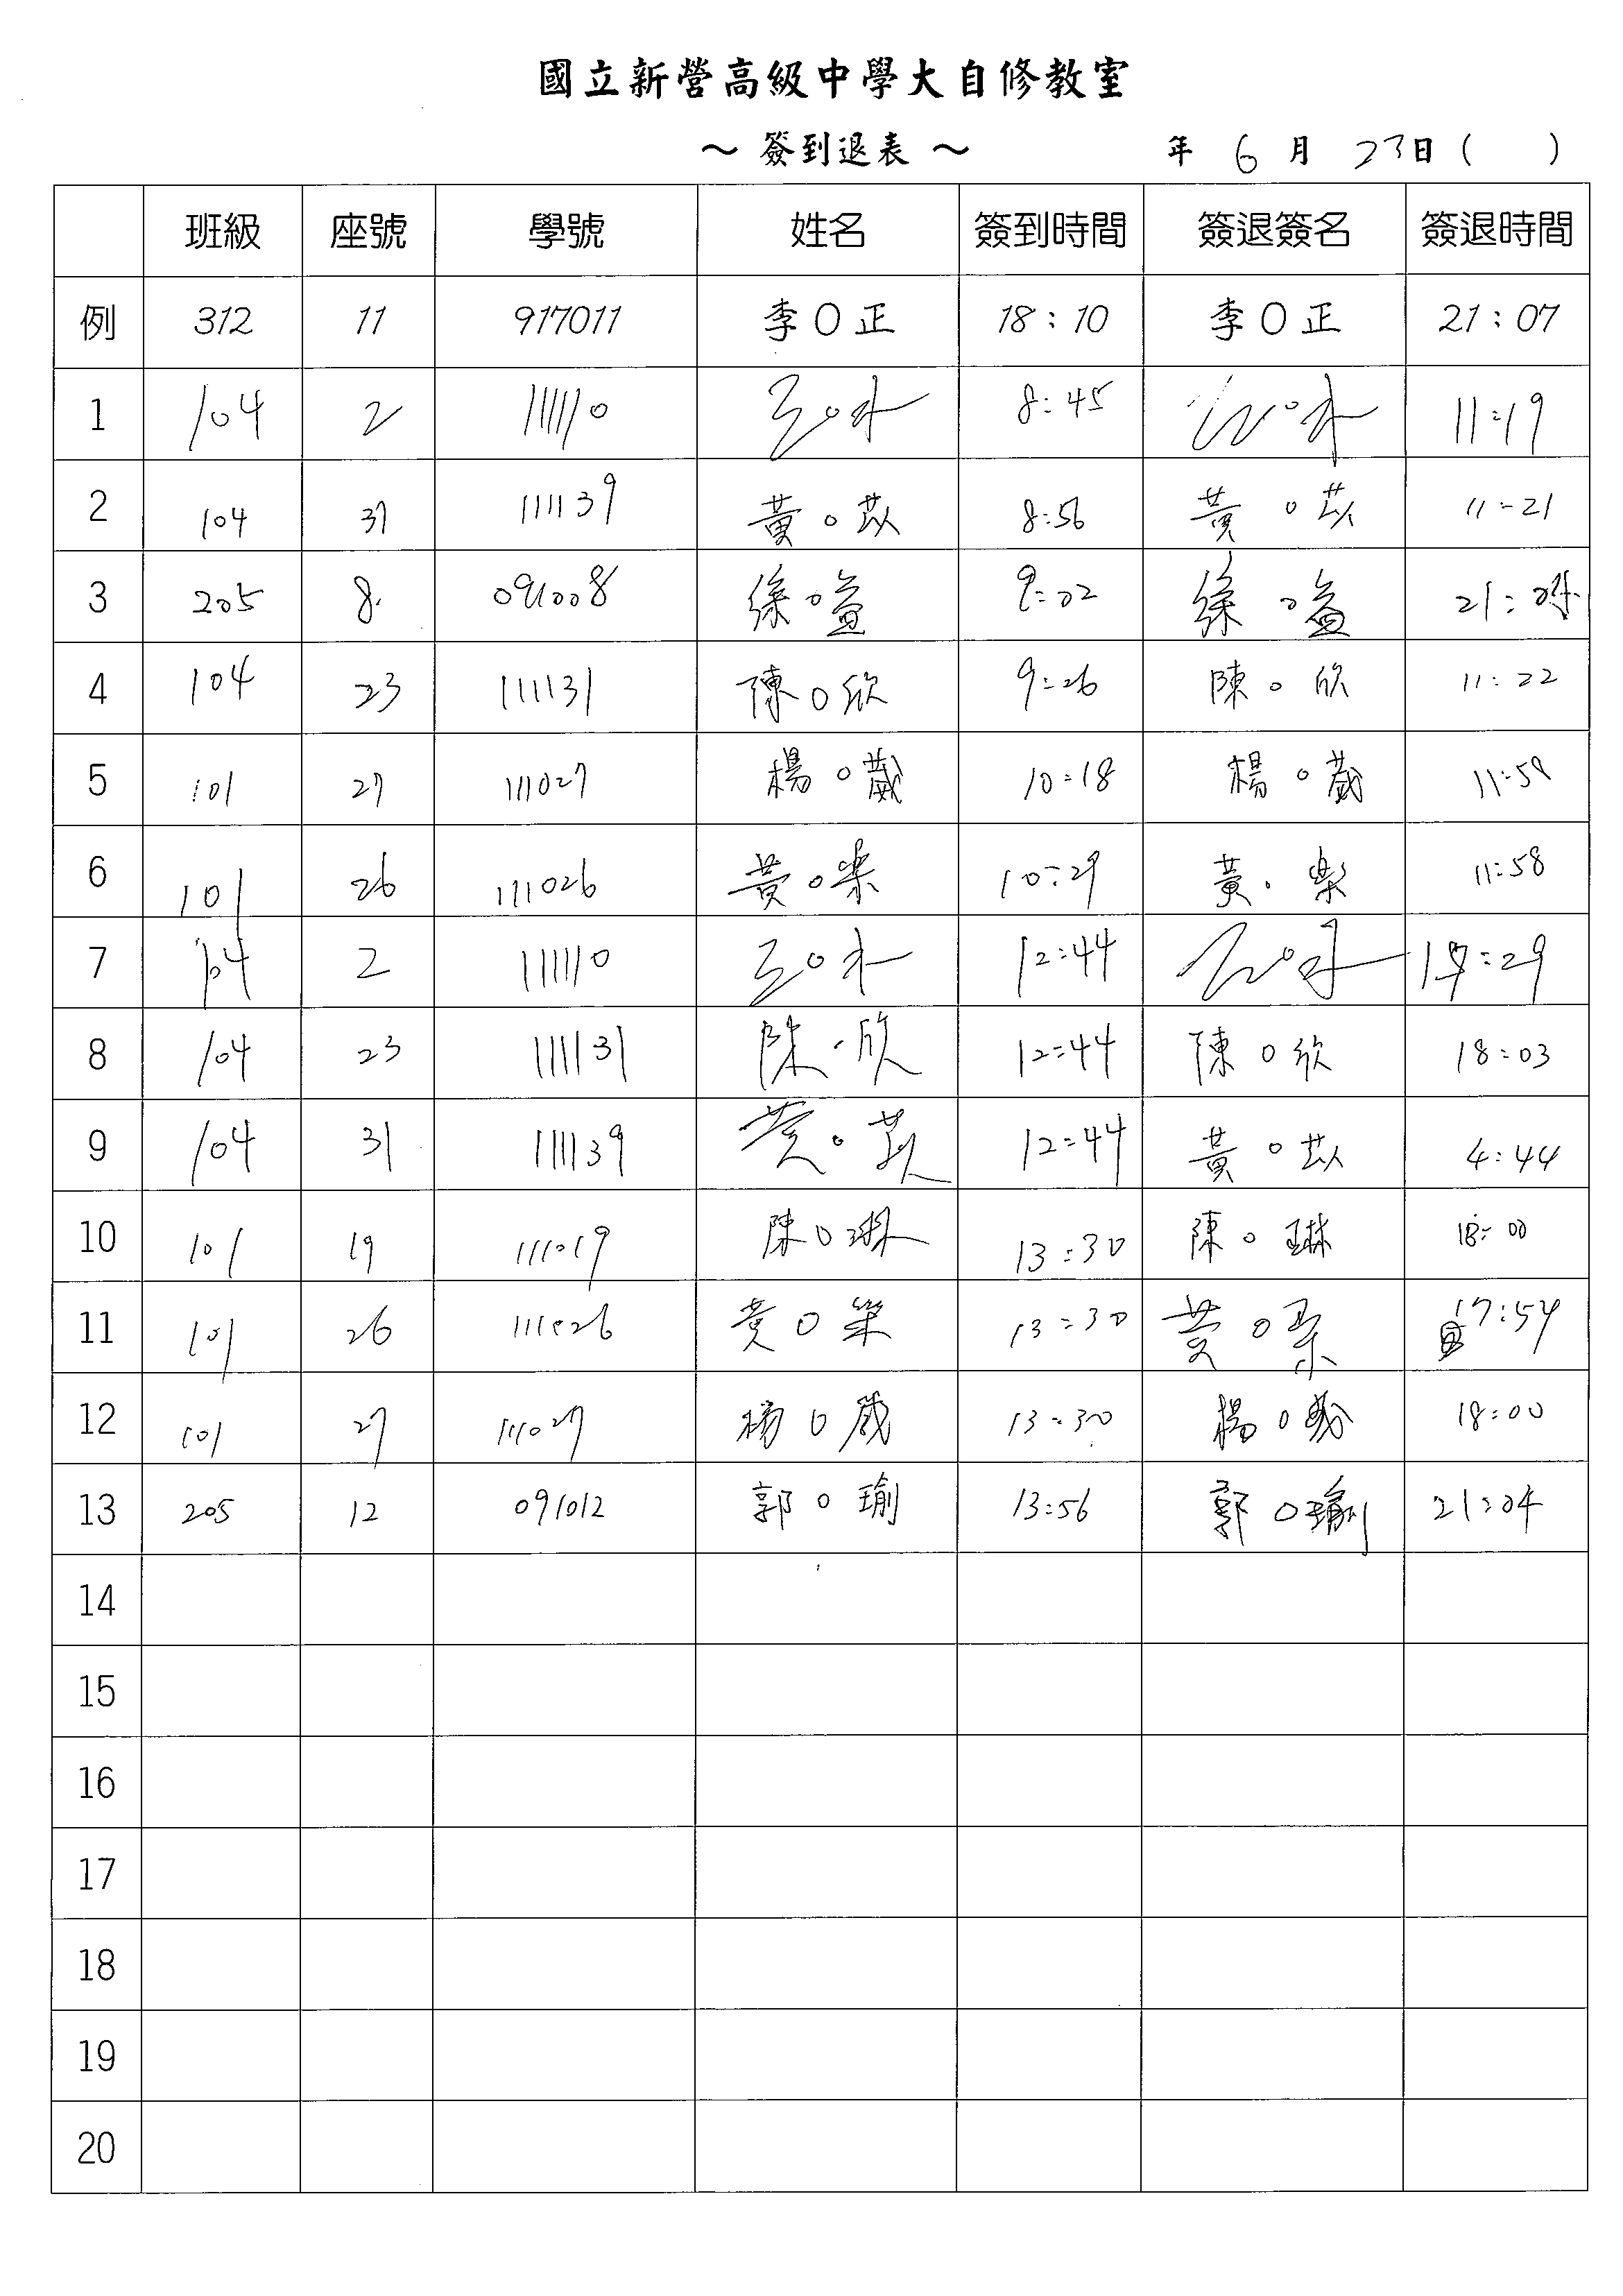 國立新營高級中學大自修教室
～ 簽到退表 ～ 年 6 月 23日 ( )
班級 座號 學號 姓名 簽到時間 簽退簽名 簽退時間
例 312 11 917011 李〇正 18:10 李〇正 21:07
1 104 2 111110 8:45 11:19
2 104 31 111139 黃〇苡 8:56 黃〇苡 11:21
3 205 8 091008 徐〇萱 9:02 徐〇萱 21:04
4 104 23 111131 陳〇欣 9:26 陳〇欣 11:22
5 101 27 111027 楊〇葳 10:18 楊〇葳 11:59
6 101 26 111026 黃〇樂 10:29 黃〇樂 11:58
7 104 2 111110 12:44 29
8 104 23 111131 陳〇欣 12:44 陳〇欣 18:03
9 104 31 111139 黃〇苡 12:44 黃〇苡 4:44
10 101 19 111019 陳〇琳 13:30 陳〇琳 18:00
11 101 26 111026 黃〇樂 13:30 黃〇樂 17:54
12 101 27 111027 楊〇葳 13:30 楊〇葳 18:00
13 205 12 091012 郭〇瑜 13:56 郭〇瑜 21:04
14
15
16
17
18
19
20